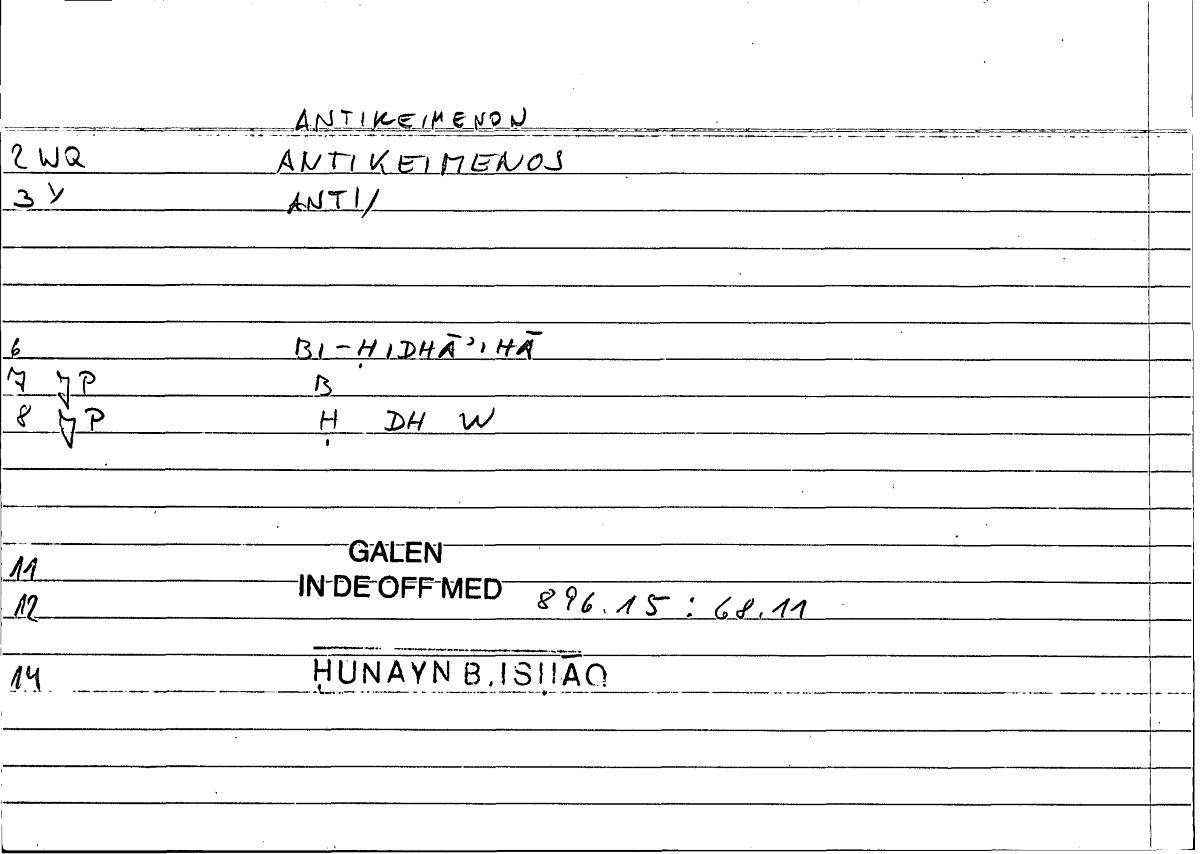 ANTIKEIMENON
2 WQ ANTIKEIMENOS
3 Y ANTI/
6 BI-ḤIDHĀʾIHĀ
7 P B
8 P Ḥ DH W
11 GALEN
IN DE OFF MED
12 896.15 : 68.11
14 ḤUNAYN B. ISḤĀQ